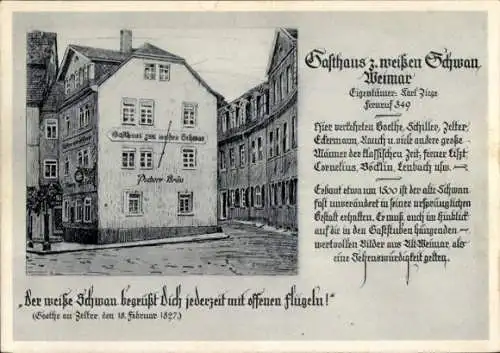 Gasthaus z. weißen Schwan
Weimar
Eigentümer: Karl Ziege
Fernruf 849
Hier verkehrten Goethe, Schiller, Zelter,
Eckermann, Rauch u. viele andere große
Männer der klassischen Zeit; ferner Liszt,
Cornelius, Böcklin, Lenbach usw. —
Erbaut etwa um 1500 ist der alte Schwan
fast unverändert in seiner ursprünglichen
Gestalt erhalten. Er muß auch im Hinblick
auf die in den Gaststuben hängenden
wertvollen Bilder aus Alt-Weimar als
eine Sehenswürdigkeit gelten.
Gasthaus zum weißen Schwan
Bräu
„Der weiße Schwan begrüßt Dich jederzeit mit offenen Flügeln!"
(Goethe an Zelter, den 18. Februar 1827.)